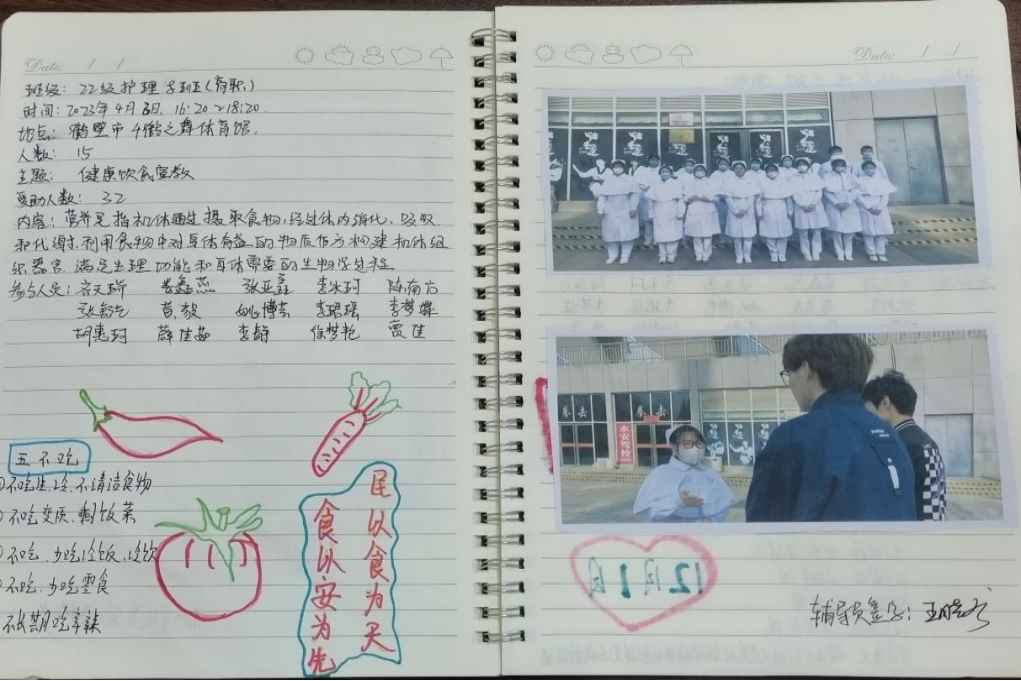 Date: / /
班级: 22级护理8班(高职)
时间: 2023年4月6日, 16:20~18:20.
地点: 鹤壁市 鹤之舞体育馆.
人数: 15
主题: 健康饮食宣教
受助人数: 32
内容: 营养是指机体通过摄取食物,经过体内消化、吸收
和代谢,利用食物中对身体有益的物质作为构建机体组
织器官、满足生理功能和身体需要的生物学过程.
参与人员: 张亚 陈雨方
李梦
胡惠珂 薛佳茹 李静 徐梦艳 贾佳
五不吃
不吃生、冷、不清洁食物
不吃变质、剩饭菜
不吃、少吃冷饭、冷饮
不吃、少吃零食
不长期吃辛辣
民以食为天
食以安为先
Date: / /
拳击
永安驾校
12月1日
辅导员签字: 王